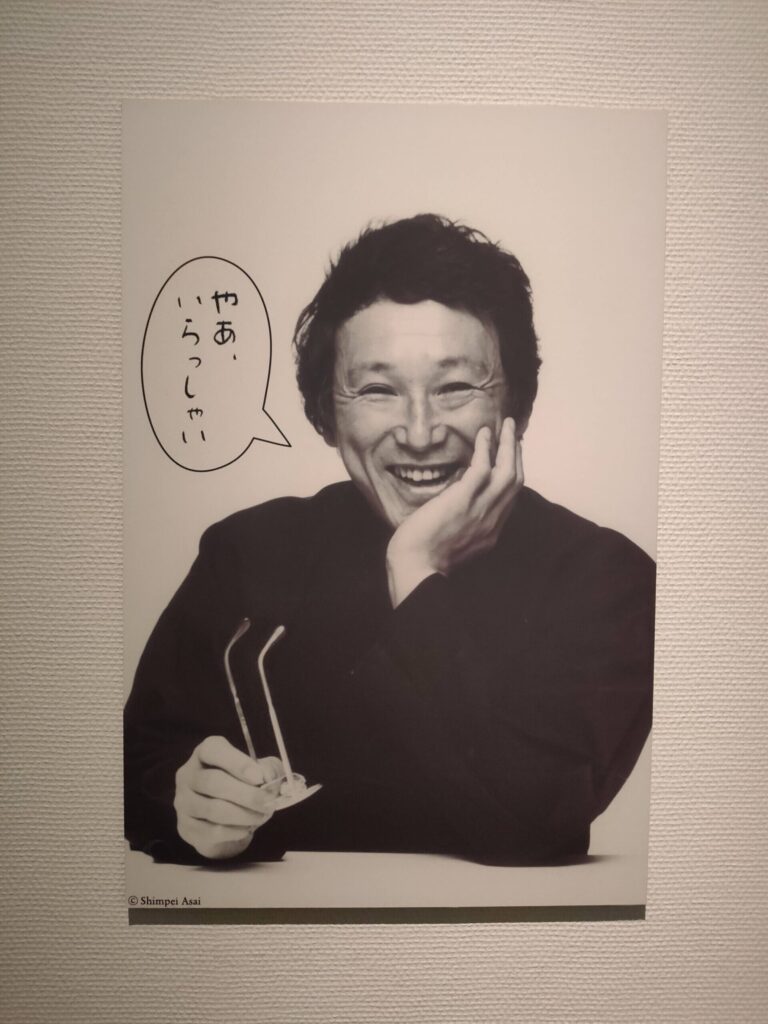 やあ、
いらっしゃい
© Shimpei Asai